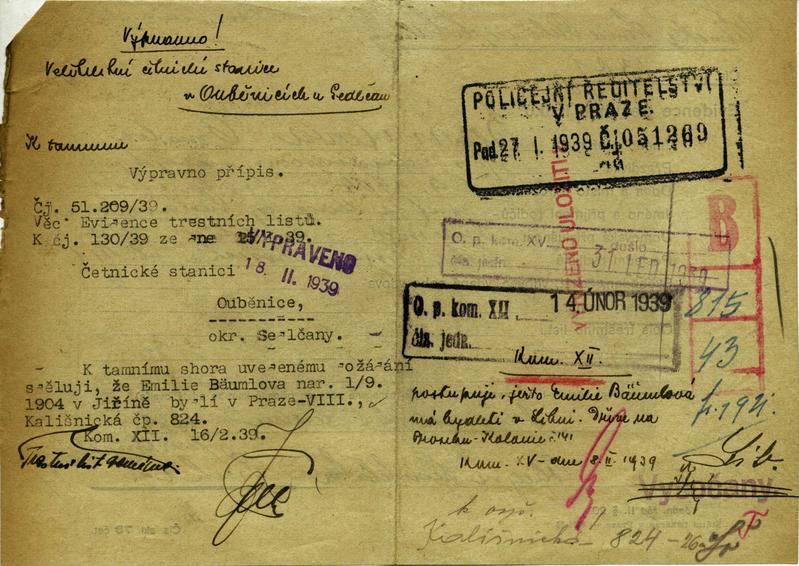 Výpravno!
četnické stanice
v Ouběnicích u Sedlčan
K tamnímu
Výpravno přípis.
Čj. 51.209/39.
Věc: Evidence trestních listů.
K čj. 130/39 ze dne 39.
VYPRAVENO
18. II. 1939
Četnické stanici
Ouběnice,
okr. Sedlčany.
K tamnímu shora uvedenému dožádání
sděluji, že Emilie Bäumlova nar. 1/9.
1904 v Jiříně bydlí v Praze-VIII.,
Kališnická čp. 824.
Kom. XII. 16/2.39.
POLICEJNÍ ŘEDITELSTVÍ
V PRAZE.
Pod. 27 I. 1939 Čj. 051209
ULOŽITI
B
O. p. kom. XV. došlo
čís. jedn. 31 LED. 1939
O. p. kom. XII 14. ÚNOR 1939
čís. jedn.
815
43
Kom. XII.
postupuji, ježto Emilie Bäumlová
má bydleti v Libni. Dříve na
Kolonie č. 141
Kom. XV - dne 8. II. 1939
Vysočany
Kališnická 824